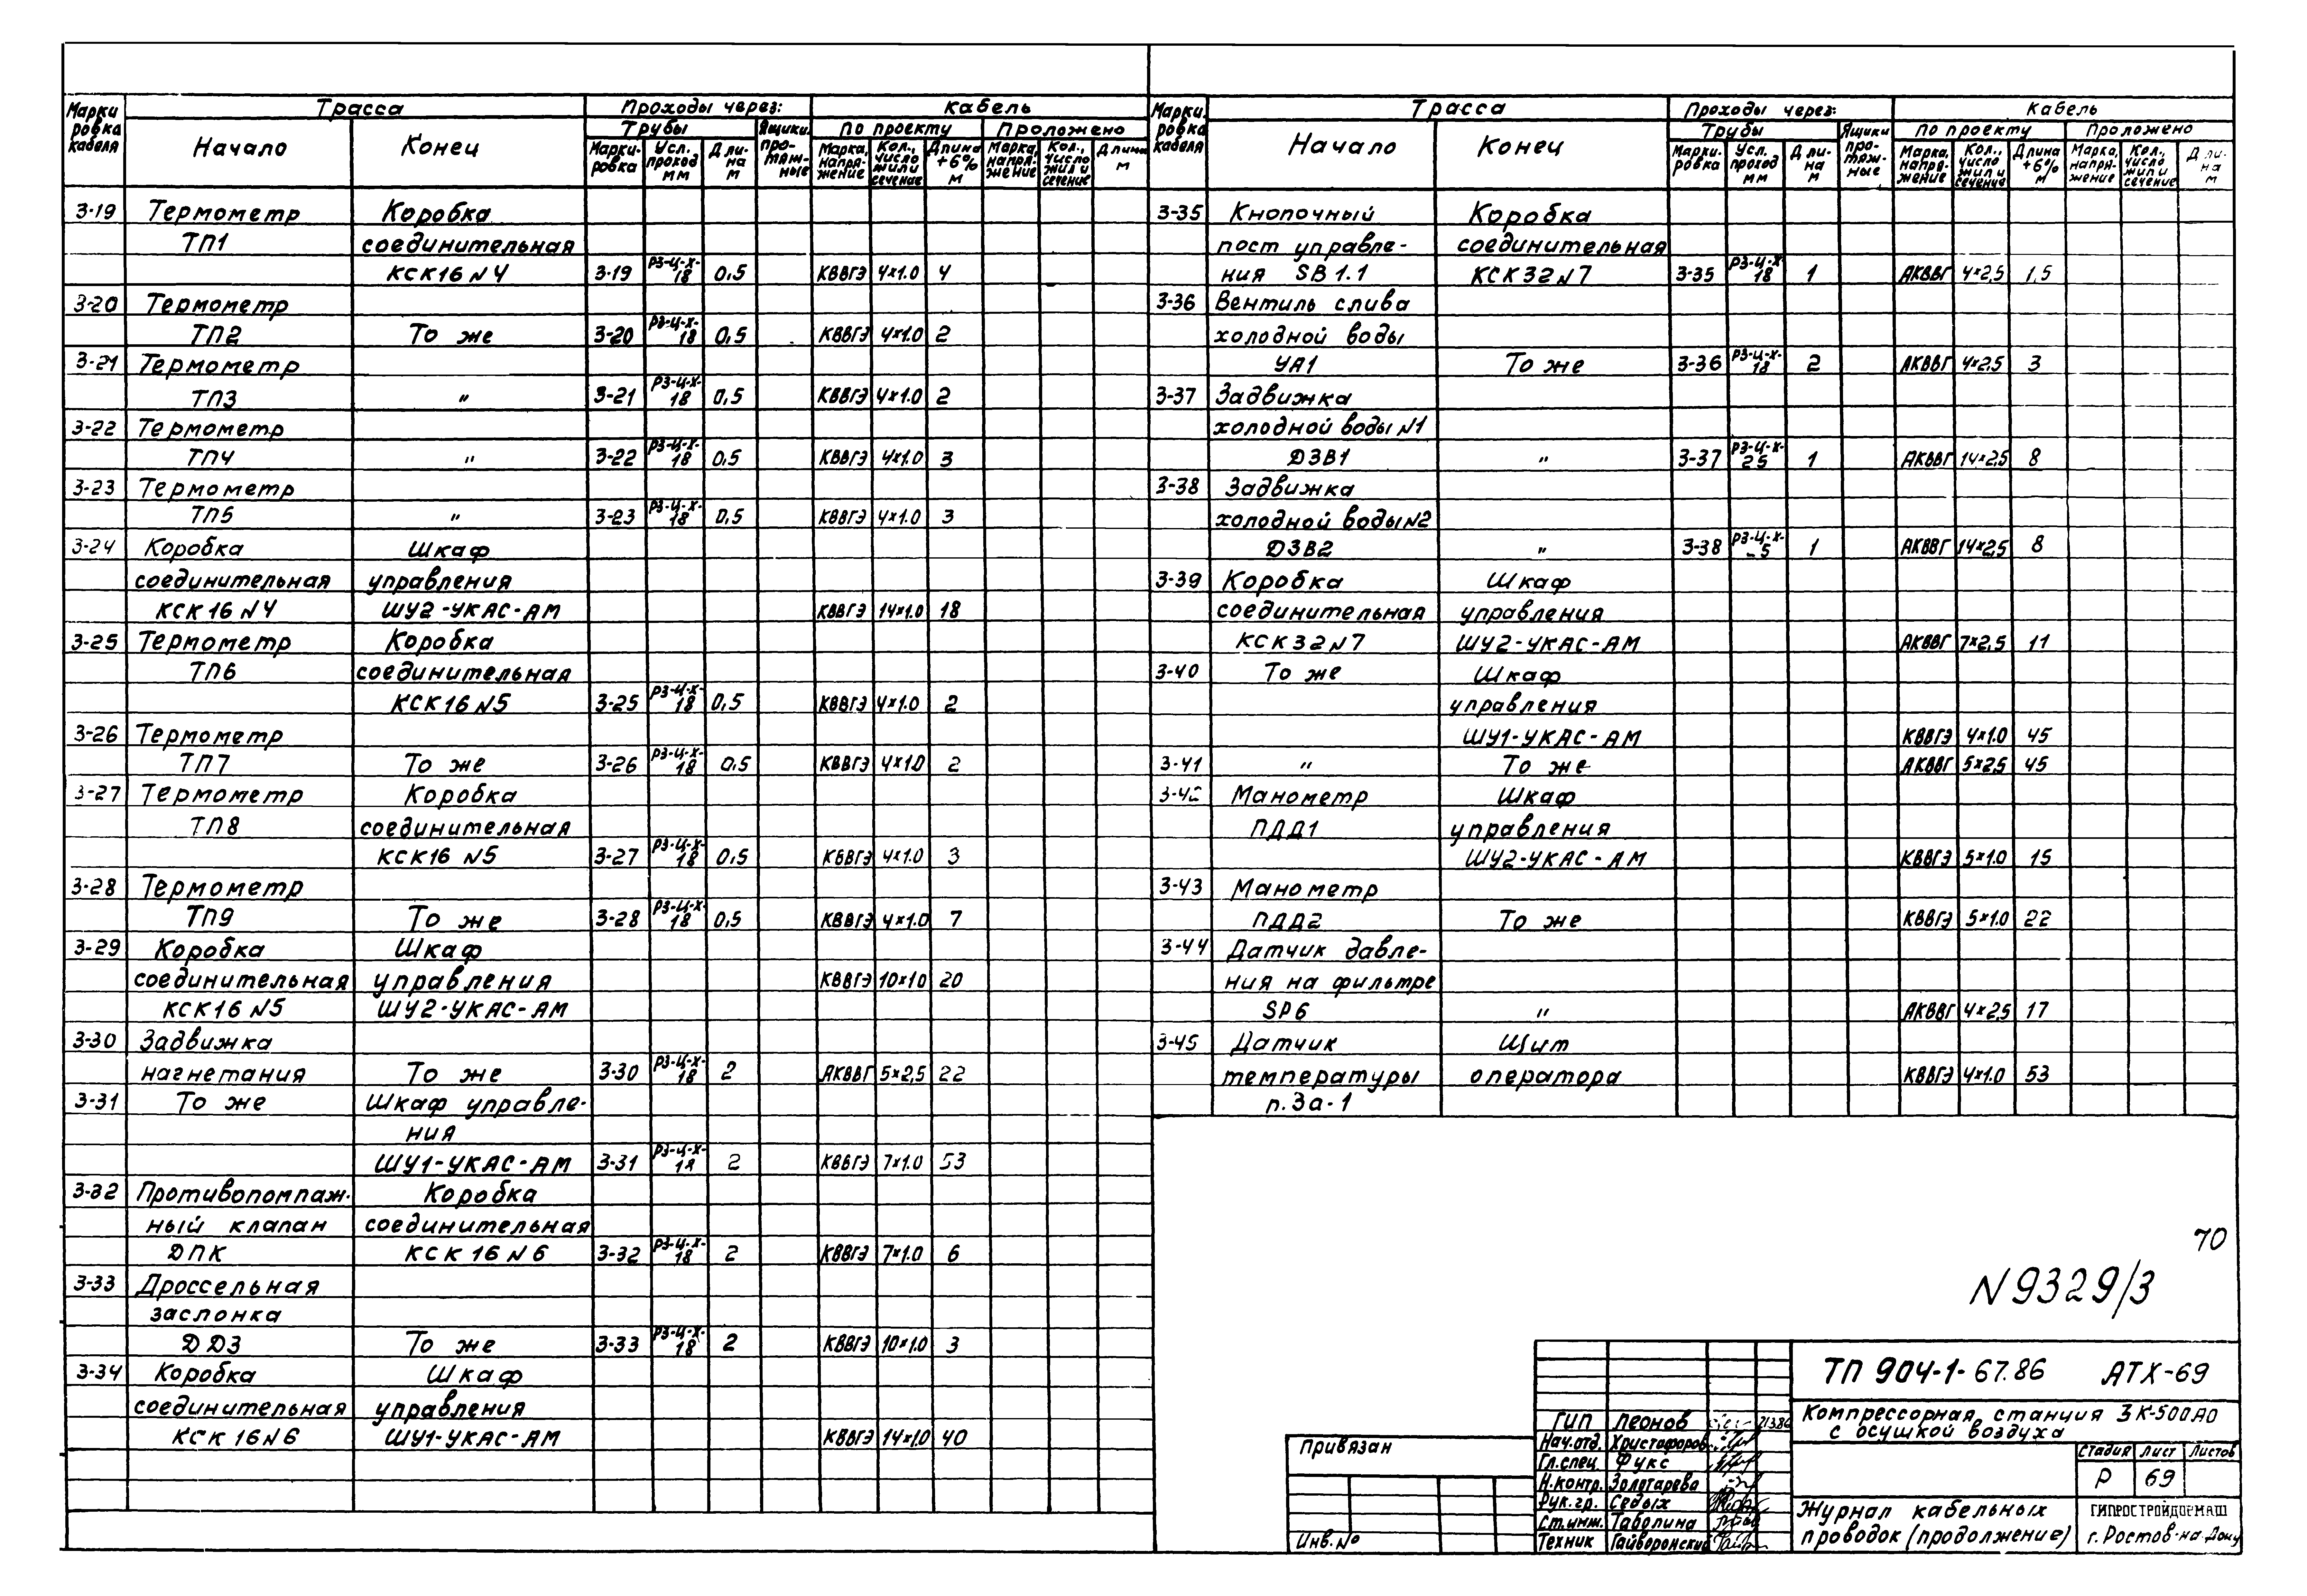 Марки ровка кабеля Трасса Проходы через: Кабель
Начало Конец Трубы Ящики про- тяж- ные По проекту Проложено
Марки- ровка Усл. проход мм Дли- на м Марка, напря- жение Кол., число жил и сечение Длина +6% м Марка, напря- жение Кол., число жил и сечение Длина м
3-19 Термометр Коробка
ТП1 соединительная
КСК16 N4 3-19 РЗ-Ц-Х-18 0,5 КВВГЭ 4×1.0 4
3-20 Термометр
ТП2 То же 3-20 РЗ-Ц-Х-18 0,5 КВВГЭ 4×1.0 2
3-21 Термометр
ТП3 " 3-21 РЗ-Ц-Х-18 0,5 КВВГЭ 4×1.0 2
3-22 Термометр
ТП4 " 3-22 РЗ-Ц-Х-18 0,5 КВВГЭ 4×1.0 3
3-23 Термометр
ТП5 " 3-23 РЗ-Ц-Х-18 0,5 КВВГЭ 4×1.0 3
3-24 Коробка Шкаф
соединительная управления
КСК16 N4 ШУ2-УКАС-АМ КВВГЭ 14×1.0 18
3-25 Термометр Коробка
ТП6 соединительная
КСК16 N5 3-25 РЗ-Ц-Х-18 0,5 КВВГЭ 4×1.0 2
3-26 Термометр
ТП7 То же 3-26 РЗ-Ц-Х-18 0,5 КВВГЭ 4×1.0 2
3-27 Термометр Коробка
ТП8 соединительная
КСК16 N5 3-27 РЗ-Ц-Х-18 0,5 КВВГЭ 4×1.0 3
3-28 Термометр
ТП9 То же 3-28 РЗ-Ц-Х-18 0,5 КВВГЭ 4×1.0 7
3-29 Коробка Шкаф
соединительная управления КВВГЭ 10×1.0 20
КСК16 N5 ШУ2-УКАС-АМ
3-30 Задвижка
нагнетания То же 3-30 РЗ-Ц-Х-18 2 АКВВГ 5×2,5 22
3-31 То же Шкаф управле-
ния
ШУ1-УКАС-АМ 3-31 РЗ-Ц-Х-18 2 КВВГЭ 7×1.0 53
3-32 Противопомпаж- Коробка
ный клапан соединительная
ДПК КСК16 N6 3-32 РЗ-Ц-Х-18 2 КВВГЭ 7×1.0 6
3-33 Дроссельная
заслонка
ДДЗ То же 3-33 РЗ-Ц-Х-18 2 КВВГЭ 10×1.0 3
3-34 Коробка Шкаф
соединительная управления
КСК16 N6 ШУ1-УКАС-АМ КВВГЭ 14×1.0 40
Марки- ровка кабеля Трасса Проходы через: Кабель
Начало Конец Трубы Ящики про- тяж- ные По проекту Проложено
Марки- ровка Усл. проход мм Дли- на м Марка, напря- жение Кол., число жил и сечение Длина +6% м Марка, напря- жение Кол., число жил и сечение Дли- на м
3-35 Кнопочный Коробка
пост управле- соединительная
ния SB1.1 КСК32 N7 3-35 РЗ-Ц-Х-18 1 АКВВГ 4×2,5 1,5
3-36 Вентиль слива
холодной воды
УА1 То же 3-36 РЗ-Ц-Х-18 2 АКВВГ 4×2,5 3
3-37 Задвижка
холодной воды N1
ДЗВ1 " 3-37 РЗ-Ц-Х-25 1 АКВВГ 14×2,5 8
3-38 Задвижка
холодной воды N2
ДЗВ2 " 3-38 РЗ-Ц-Х- 1 АКВВГ 14×2,5 8
3-39 Коробка Шкаф
соединительная управления
КСК32 N7 ШУ2-УКАС-АМ АКВВГ 7×2,5 11
3-40 То же Шкаф
управления
ШУ1-УКАС-АМ КВВГЭ 4×1.0 45
3-41 " То же АКВВГ 5×2,5 45
3-42 Манометр Шкаф
ПДД1 управления
ШУ2-УКАС-АМ КВВГЭ 5×1.0 15
3-43 Манометр
ПДД2 То же КВВГЭ 5×1.0 22
3-44 Датчик давле-
ния на фильтре
SP6 " АКВВГ 4×2,5 17
3-45 Датчик Щит
температуры оператора КВВГЭ 4×1.0 53
п.3а-1
70
N9329/3
ТП 904-1-67.86 АТХ-69
Компрессорная станция 3К-500АО
с осушкой воздуха
Стадия Лист Листов
Р 69
Журнал кабельных
проводок (продолжение)
ГИПРОСТРОЙДОРМАШ
г. Ростов-на-Дону
ГИП Леонов
Нач.отд. Христофоров
Гл.спец Фукс
Н.контр. Золотарева
Рук.гр. Седых
Ст.инж. Таболина
Техник Гайворонский
Привязан
Инв.№